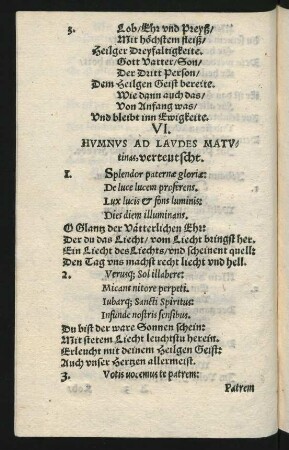 5. Lob/Ehr vnd Preyß/
Mit höchstem fleiß/
Heilger Dreyfaltigkeite.
Gott Vatter/Son/
Der Dritt Person/
Dem Heilgen Geist bereite.
Wie dann auch das/
Von Anfang was/
Vnd bleibt inn Ewigkeite.
VI.
HVMNVS AD LAVDES MATV-
tinas, verteutscht.
1. Splendor paternæ gloriæ:
De luce lucem proferens.
Lux lucis & fons luminis:
Dies diem illuminans.
O Glantz der Vätterlichen Ehr:
Der du das Liecht/ vom Liecht bringst her.
Ein Liecht des Liechts/vnd scheinent quell:
Den Tag vns machst recht liecht vnd hell.
2. Verusq; Sol illabere:
Micans nitore perpeti.
Iubarq; Sancti Spiritus:
Infunde nostris sensibus.
Du bist der ware Sonnen schein:
Mit stetem Liecht leuchtstu herein.
Erleucht mit deinem Heilgen Geist:
Auch vnser Hertzen allermeist.
3. Votis vocemus te patrem:
Patrem